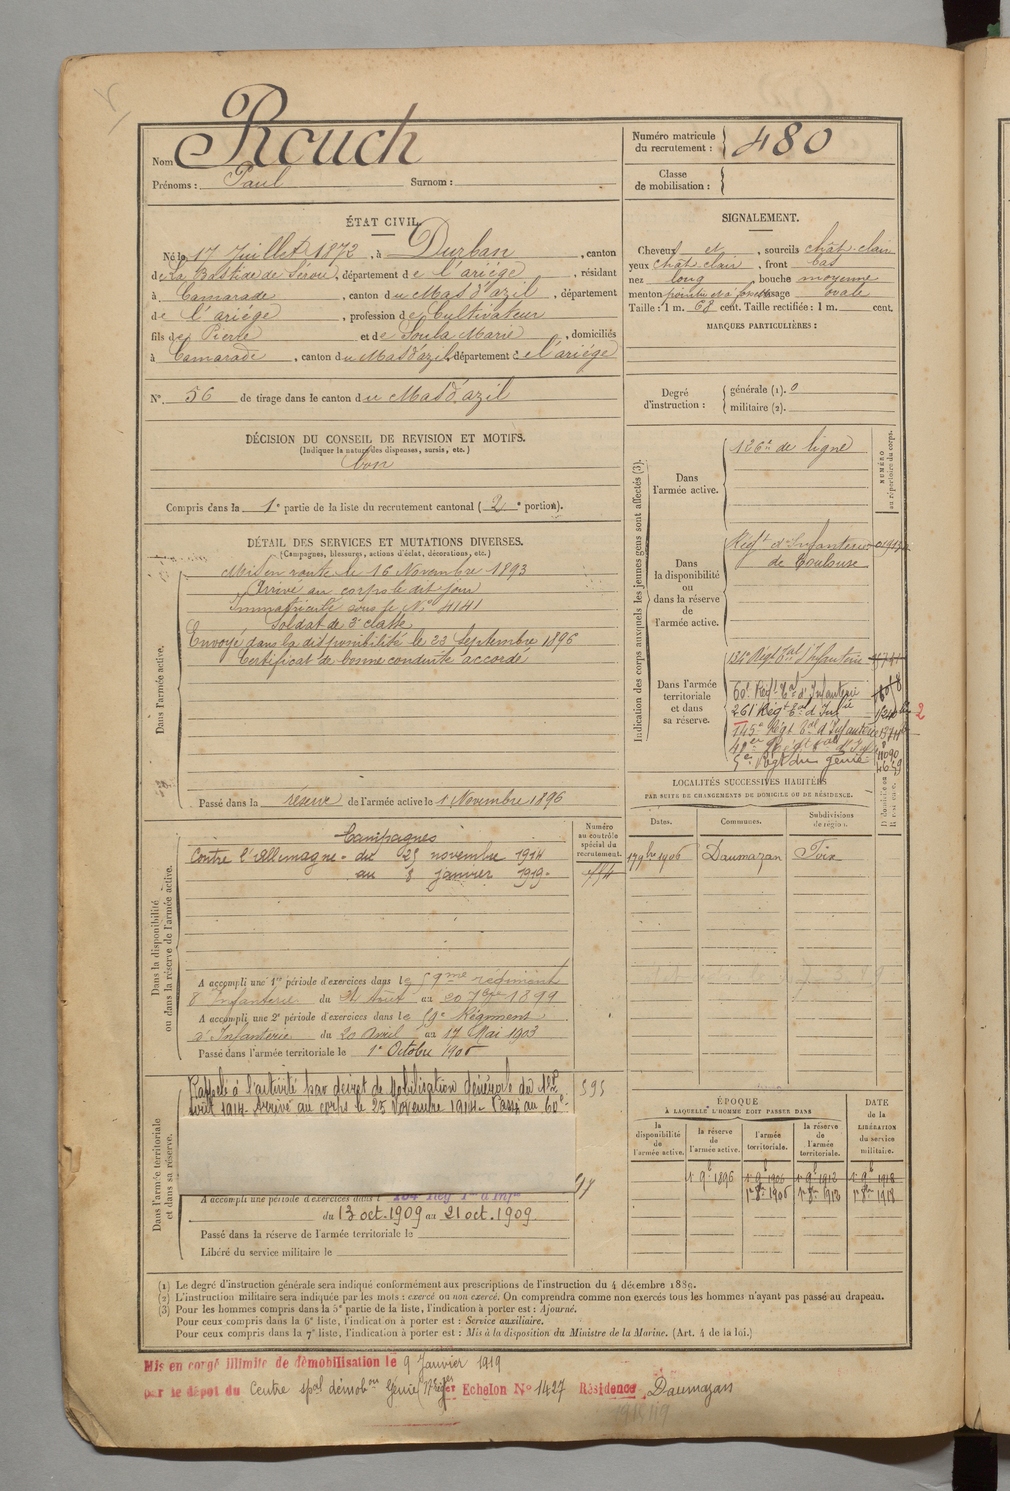 Nom Rouch
Prénoms : Paul Surnom :
Numéro matricule du recrutement : 480
Classe de mobilisation :
ÉTAT CIVIL.
Né le 17 Juillet 1872, à Durban, canton
de La Bastide de Sérou, département de l'ariège, résidant
à Camarade, canton du Mas d'azil, département
de l'ariège, profession de Cultivateur
fils de Pierre et de Soula Marie, domiciliés
à Camarade, canton du Mas d'azil, département de l'ariège
N° 56 de tirage dans le canton du Mas d'azil
DÉCISION DU CONSEIL DE REVISION ET MOTIFS.
(Indiquer la nature des dispenses, sursis, etc.)
bon
Compris dans la 1e partie de la liste du recrutement cantonal (2e portion).
SIGNALEMENT.
Cheveux et, sourcils chât-clair
yeux chât clair, front bas
nez long, bouche moyenne
menton pointu et à fossette visage ovale
Taille : 1 m. 68 cent. Taille rectifiée : 1 m. cent.
MARQUES PARTICULIÈRES :
Degré d'instruction : générale (1). 0
militaire (2).
DÉTAIL DES SERVICES ET MUTATIONS DIVERSES.
(Campagnes, blessures, actions d'éclat, décorations, etc.)
Dans l'armée active.
Mis en route le 16 Novembre 1893
Arrivé au corps le dit jour
Immatriculé sous le N° 4141
Soldat de 2e classe
Envoyé dans la disponibilité le 23 Septembre 1896
Certificat de bonne conduite accordé
Passé dans la réserve de l'armée active le 1 Novembre 1896
Indication des corps auxquels les jeunes gens sont affectés (3).
NUMÉRO au répertoire du corps.
Dans l'armée active.
126e de ligne
Dans la disponibilité ou dans la réserve de l'armée active.
Régt d'Infanterie
de Toulouse
Dans l'armée territoriale et dans sa réserve.
134e Régt Tal d'Infanterie
60e Régt Tal d'Infanterie
261e Régt Tal d'Infie
145e Régt Tal d'Infanterie
5e Régt du génie
LOCALITÉS SUCCESSIVES HABITÉES
PAR SUITE DE CHANGEMENTS DE DOMICILE OU DE RÉSIDENCE.
Dates. Communes. Subdivisions de région.
17 9bre 1906 Daumazan Foix
Dans la disponibilité ou dans la réserve de l'armée active.
Numéro au contrôle spécial du recrutement.
Campagnes
Contre l'Allemagne - du 25 novembre 1914
au 8 janvier 1919-
A accompli une 1re période d'exercices dans le 59me régiment
d'Infanterie du 24 Août au 20 7bre 1899
A accompli une 2e période d'exercices dans le 59e Régiment
d'Infanterie du 20 Avril au 17 Mai 1903
Passé dans l'armée territoriale le 1er Octobre 1906
Dans l'armée territoriale et dans sa réserve.
Rappelé à l'activité par décret de Mobilisation Générale du 1er
Août 1914- Arrivé au corps le 25 Novembre 1914- Passé au 60e-
595
A accompli une période d'exercices dans l
du 13 oct. 1909 au 21 oct. 1909
Passé dans la réserve de l'armée territoriale le
Libéré du service militaire le
ÉPOQUE
À LAQUELLE L'HOMME DOIT PASSER DANS
DATE de la LIBÉRATION du service militaire.
la disponibilité de l'armée active. la réserve de l'armée active. l'armée territoriale. la réserve de l'armée territoriale.
1er 9bre 1896 1er 9bre 1906 1er 9bre 1912 1er 9bre 1918
1er 8bre 1906 1er 8bre 1912 1er 8bre 1918
(1) Le degré d'instruction générale sera indiqué conformément aux prescriptions de l'instruction du 4 décembre 1889.
(2) L'instruction militaire sera indiquée par les mots : exercé ou non exercé. On comprendra comme non exercés tous les hommes n'ayant pas passé au drapeau.
(3) Pour les hommes compris dans la 5e partie de la liste, l'indication à porter est : Ajourné.
Pour ceux compris dans la 6e liste, l'indication à porter est : Service auxiliaire.
Pour ceux compris dans la 7e liste, l'indication à porter est : Mis à la disposition du Ministre de la Marine. (Art. 4 de la loi.)
Mis en congé illimité de démobilisation le 9 Janvier 1919
par le dépôt du Centre spal démobon Génie Echelon N° 1427 Résidence Daumazan